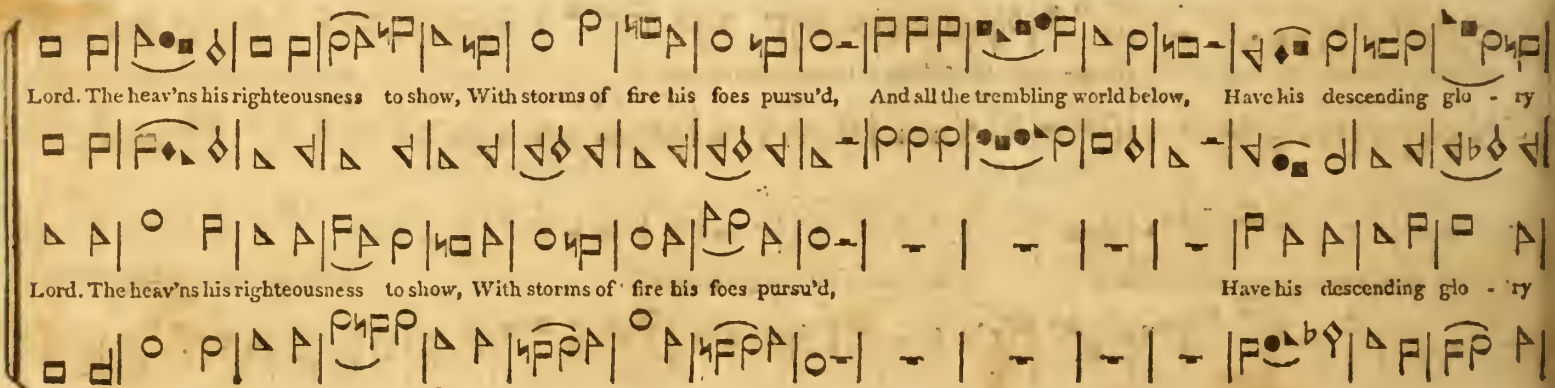 Lord. The heav'ns his righteousness to show, With storms of fire his foes pursu'd, And all the trembling world below, Have his descending glo - ry
Lord. The heav'ns his righteousness to show, With storms of fire his foes pursu'd, Have his descending glo - ry